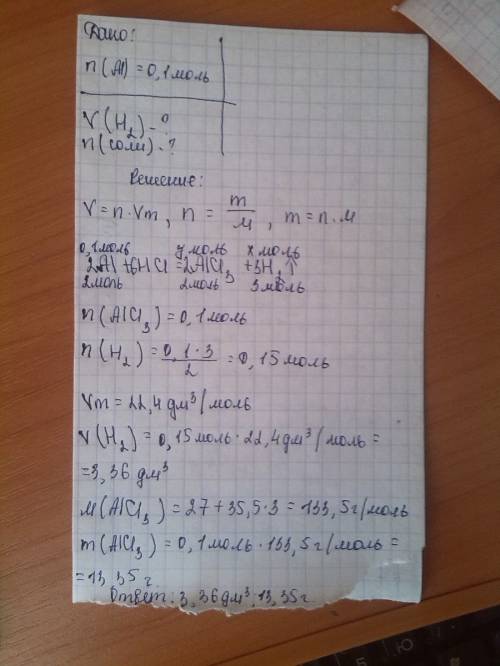 Дано:
n(Al) = 0,1 моль
V(H₂) - ?
n(соли) - ?
Решение:
V = n·Vm, n = m/M, m = n·M
0,1 моль y моль x моль
2Al + 6HCl = 2AlCl₃ + 3H₂↑
2 моль 2 моль 3 моль
n(AlCl₃) = 0,1 моль
n(H₂) = 0,1·3/2 = 0,15 моль
Vm = 22,4 дм³/моль
V(H₂) = 0,15 моль · 22,4 дм³/моль =
= 3,36 дм³
M(AlCl₃) = 27 + 35,5·3 = 133,5 г/моль
m(AlCl₃) = 0,1 моль · 133,5 г/моль =
= 13,35 г
Ответ: 3,36 дм³; 13,35 г
Ю